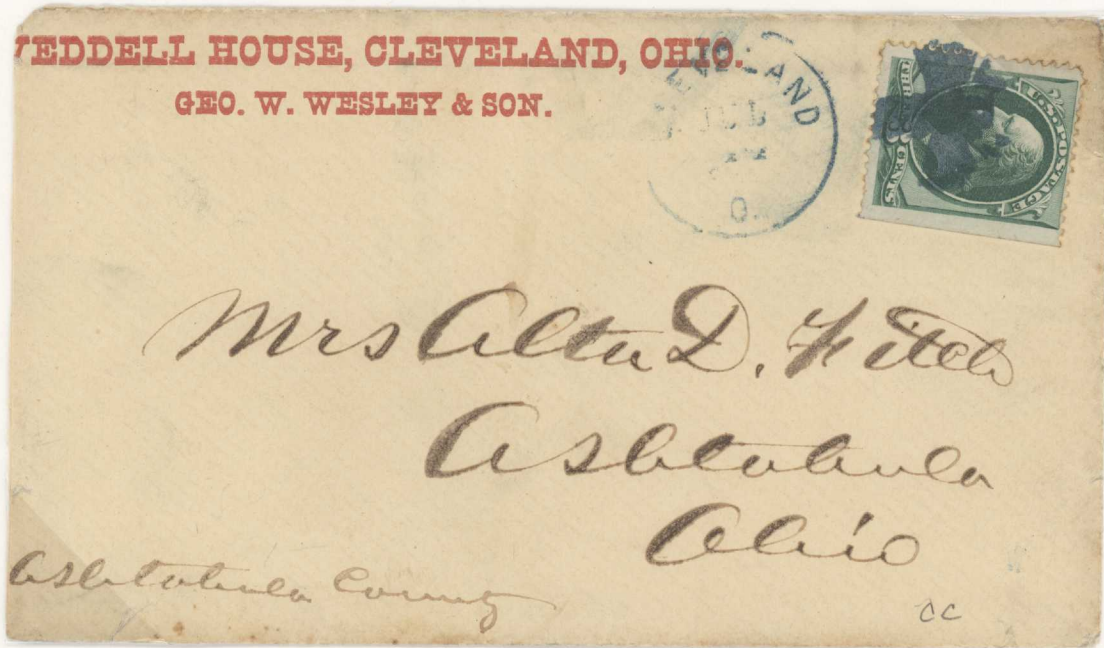 VEDDELL HOUSE, CLEVELAND, OHIO.
GEO. W. WESLEY & SON.
EVELAND
JUL
O.
U.S. POSTAGE
THREE CENTS
Mrs Alta D. Fitch
Ashtabula
Ohio
Ashtabula County
CC